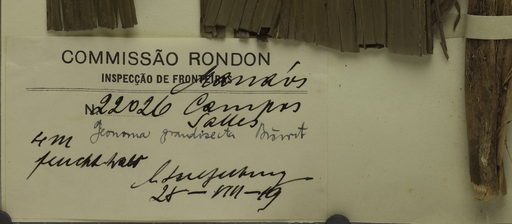 COMMISSÃO RONDON
INSPECÇÃO DE FRONTEIRAS Manáos
No. 22026 Campos
Salles
Geonoma grandisecta Burret
4 m
feucht. Wald
28-VIII-19